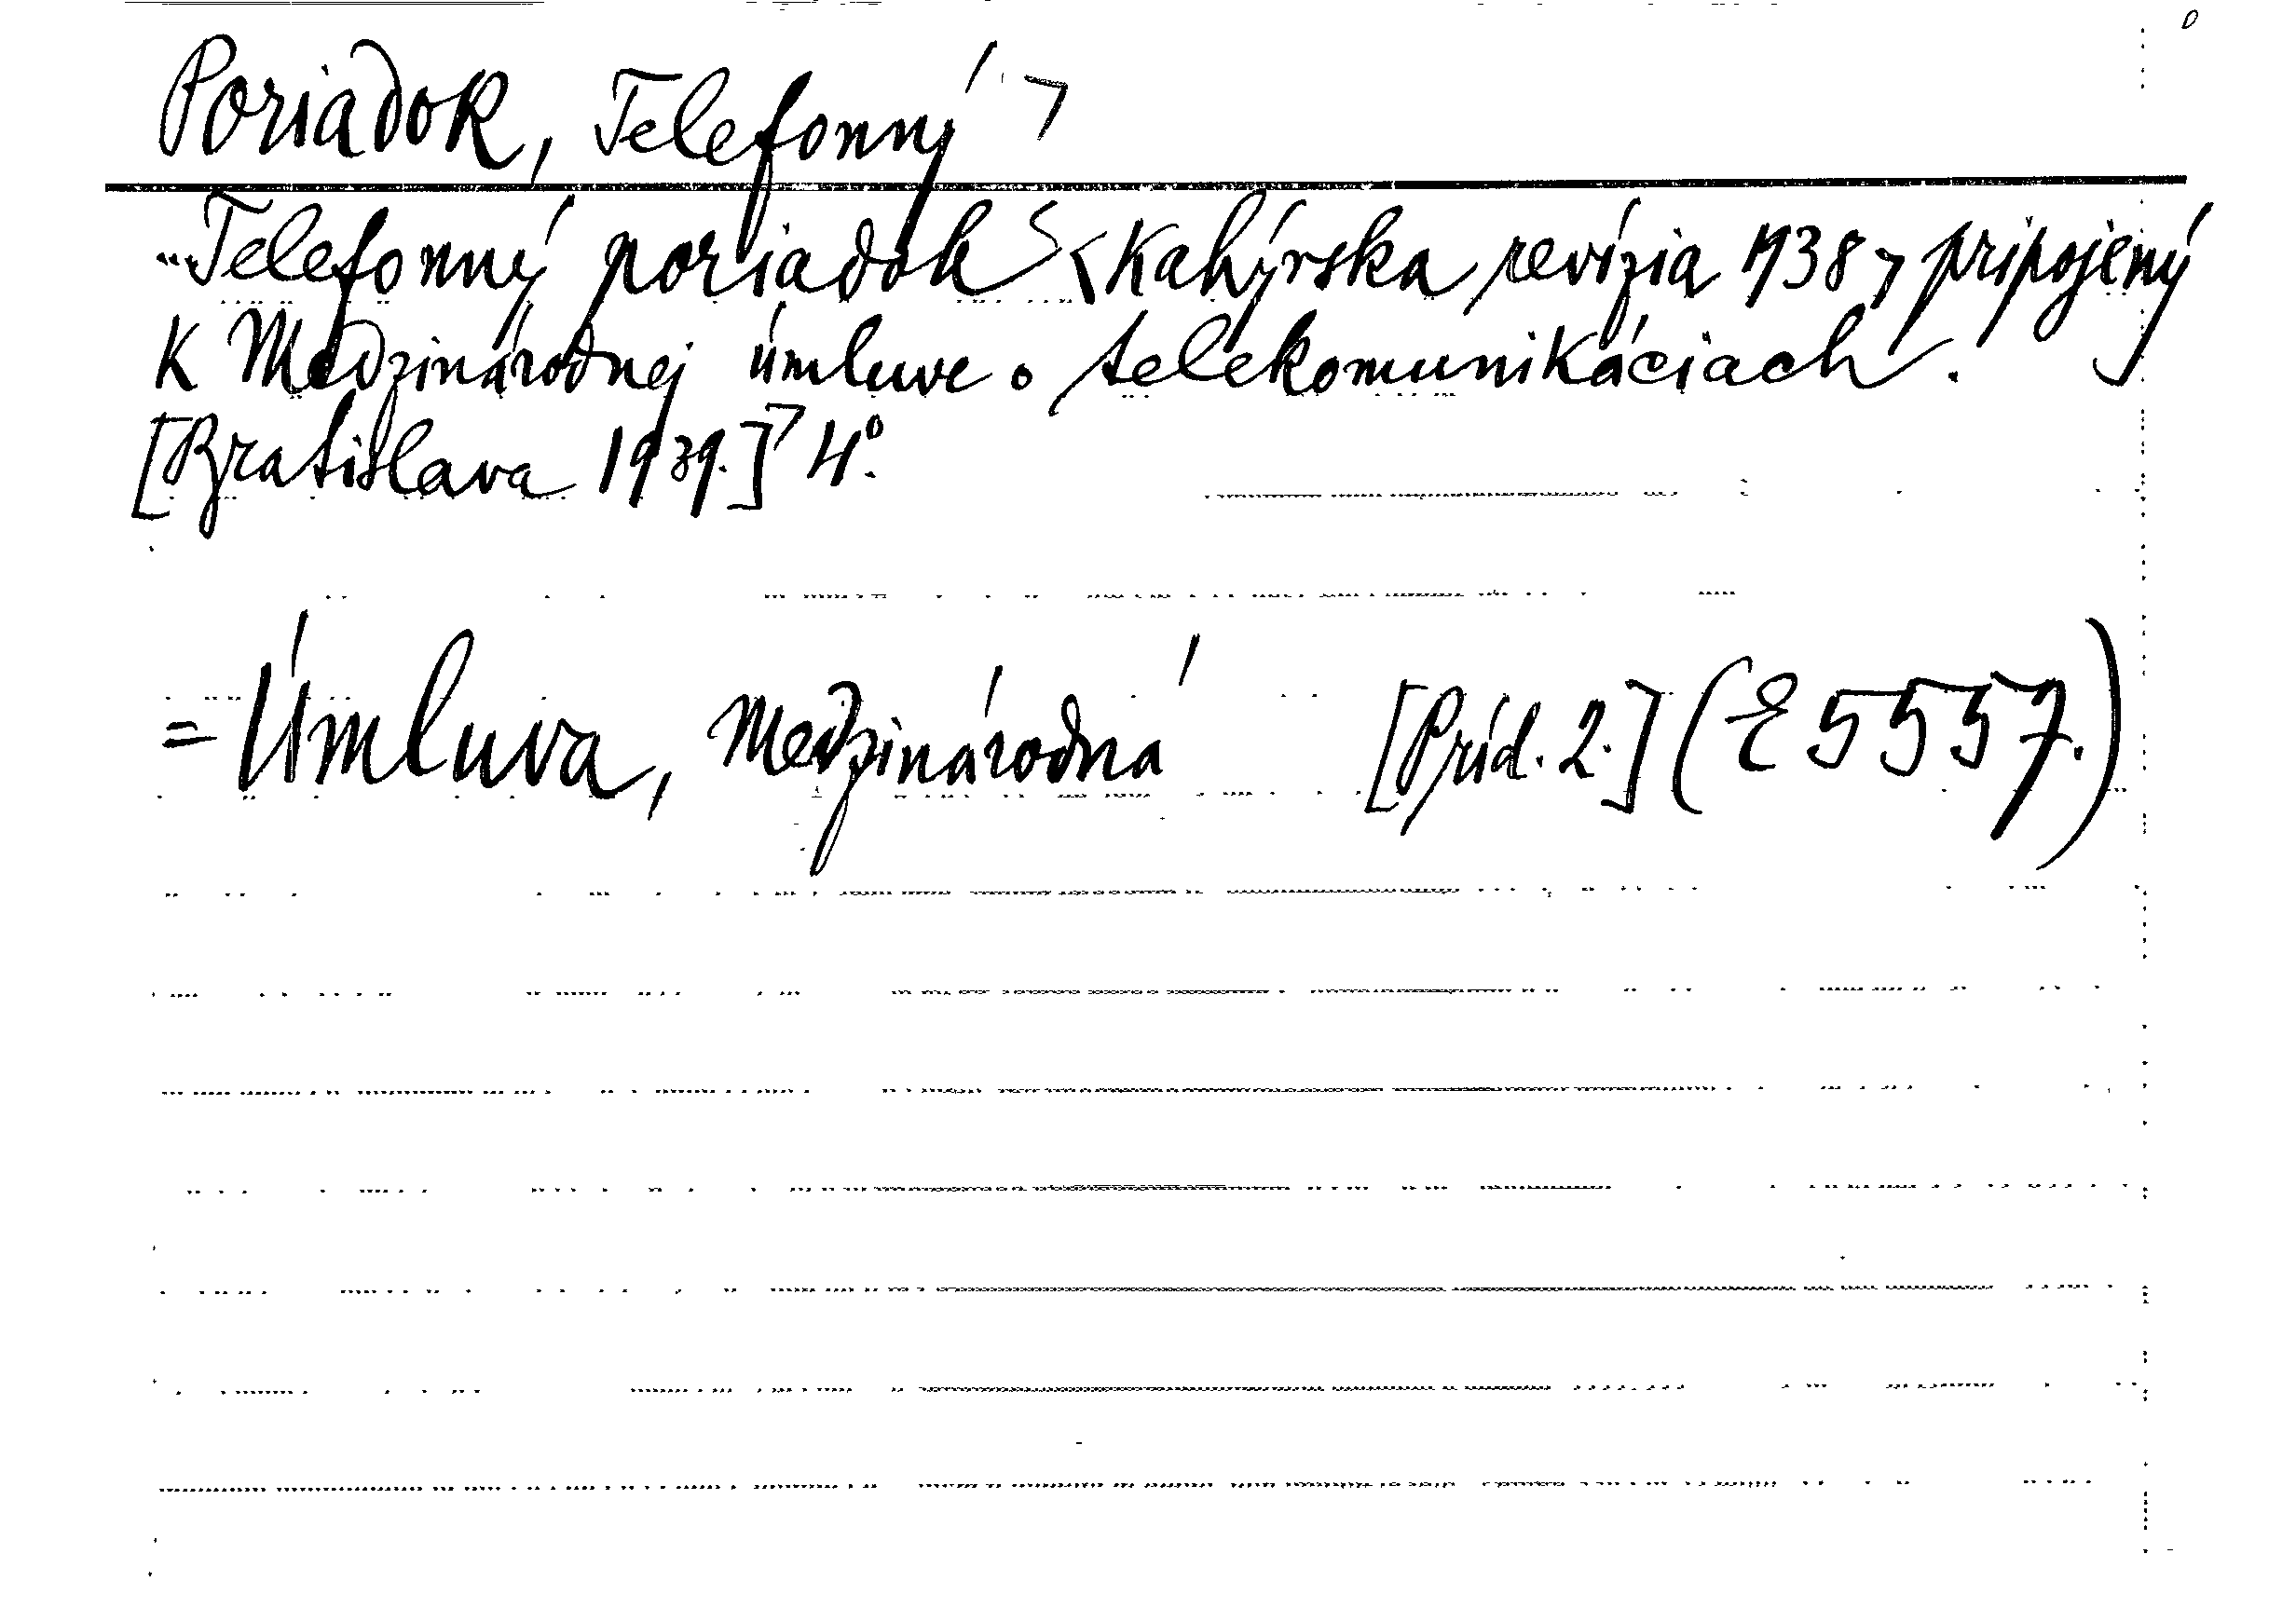 Poriadok, Telefonný
"Telefonný poriadok <Kahýrska revízia 1938> pripojený
k Medzinárodnej úmluve o telekomunikáciach.
[Bratislava 1939.] 4°.
= Úmluva, Medzinárodná [Príd. 2.] (E 5557.)